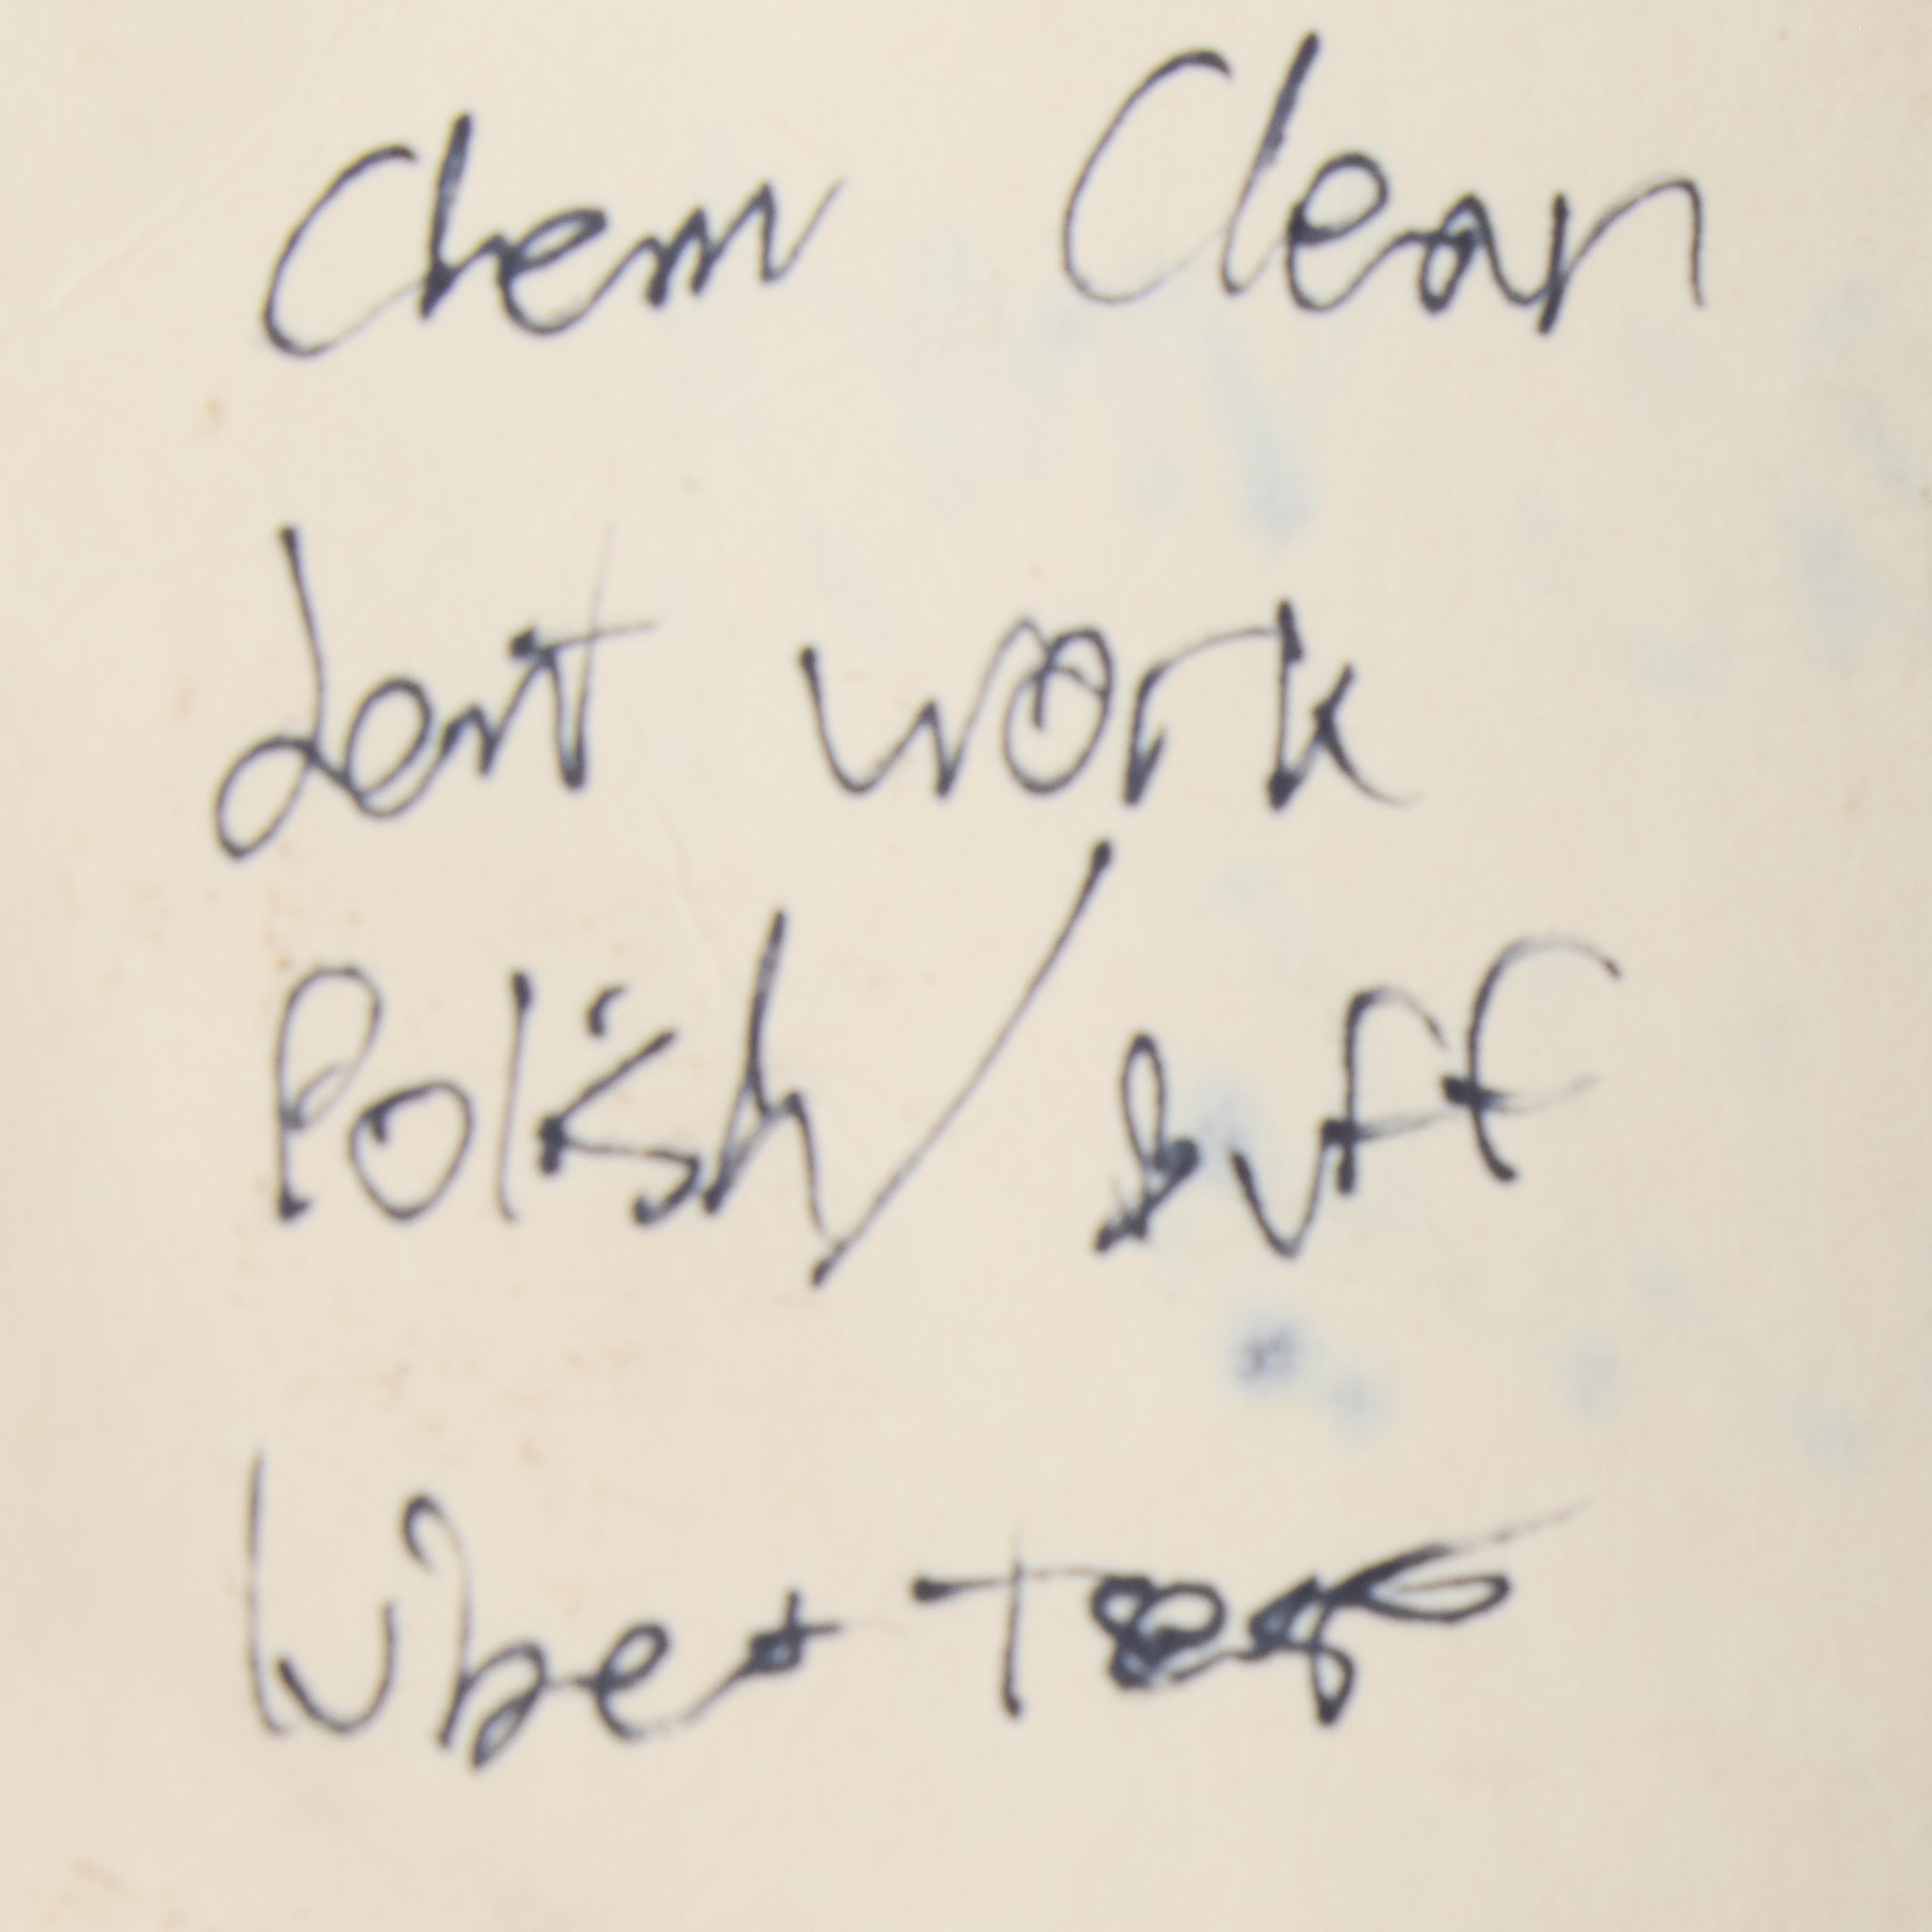 Chem Clean
dent work
Polish/ buff